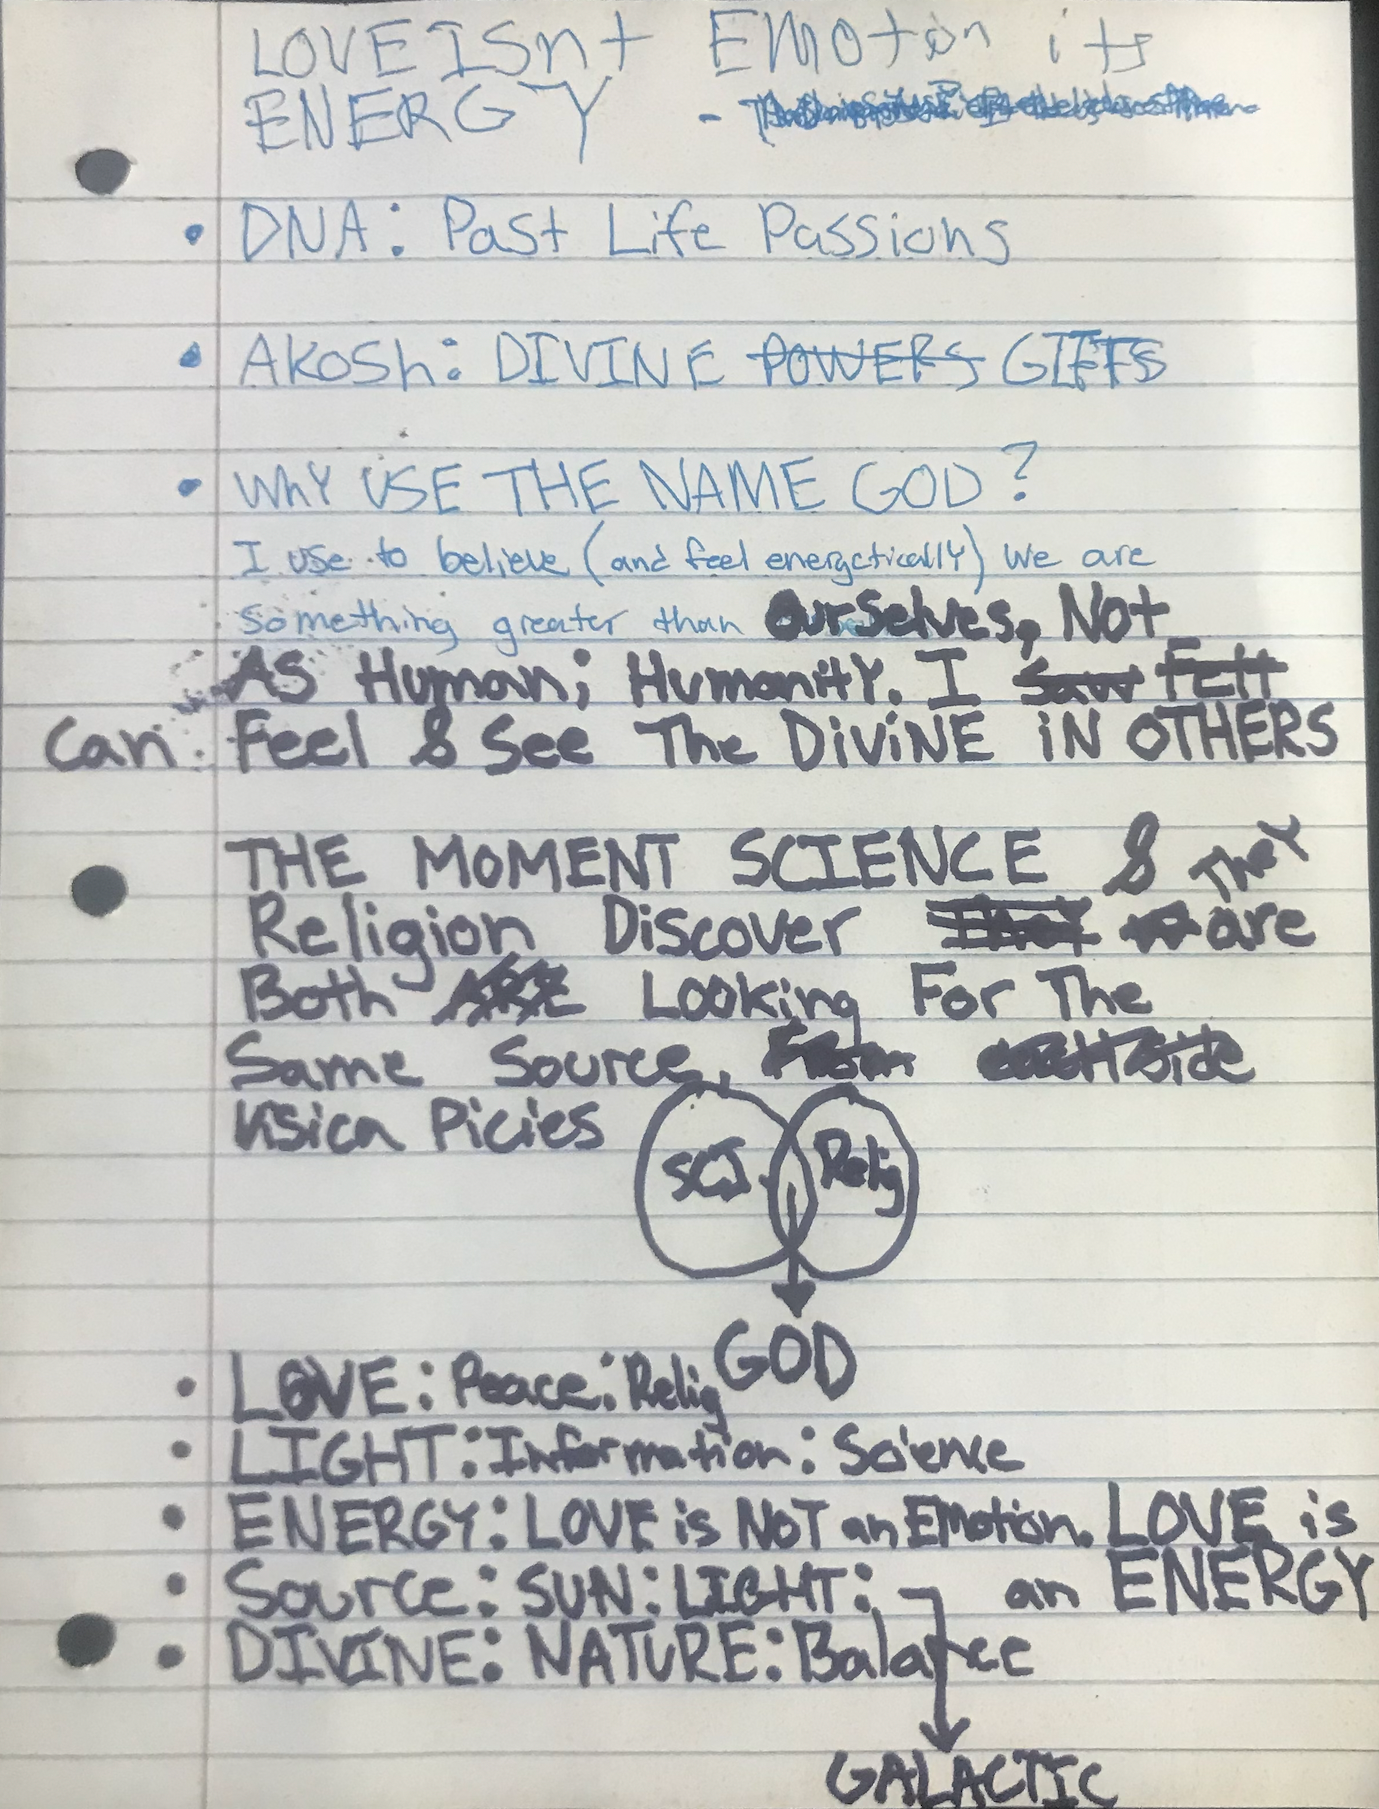 LOVE ISnt Emotion its
ENERGY -
• DNA: Past Life Passions
• AKOSh: DIVINE POWERS GIFTS
• WhY USE THE NAME GOD?
I use to believe (and feel energetically) We are
something greater than OurSelves, Not
As Human; HumanitY. I Saw Felt
Can Feel & See The DiViNE iN OTHERS
THE MOMENT SCIENCE & TheY
Religion Discover They are
Both ARE Looking For The
Same Source, From
Vsica Picies
SCI. Relig
GOD
• LOVE: Peace: Relig
• LIGHT: Information: Science
• ENERGY: LOVE is NOT an Emotion. LOVE is
an ENERGY
• Source: SUN: LIGHT:
• DIVINE: NATURE: Balance
GALACTIC